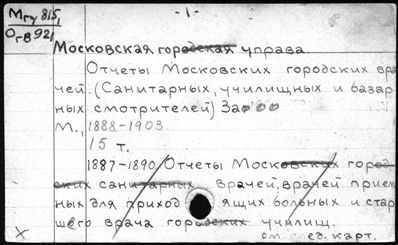 Мгу 815,
- 1 -
ОгВ 921
Московская городская управа.
Отчеты Московских городских вра
чей. (Санитарных, училищных и базар
ных смотрителей) За
М., 1888-1903
15 т.
1887-1890/Отчеты Московских город
ских санитарных врачей, врачей прием
ных для приход ящих больных и стар
шего врача городских училищ.
см. след. карт.